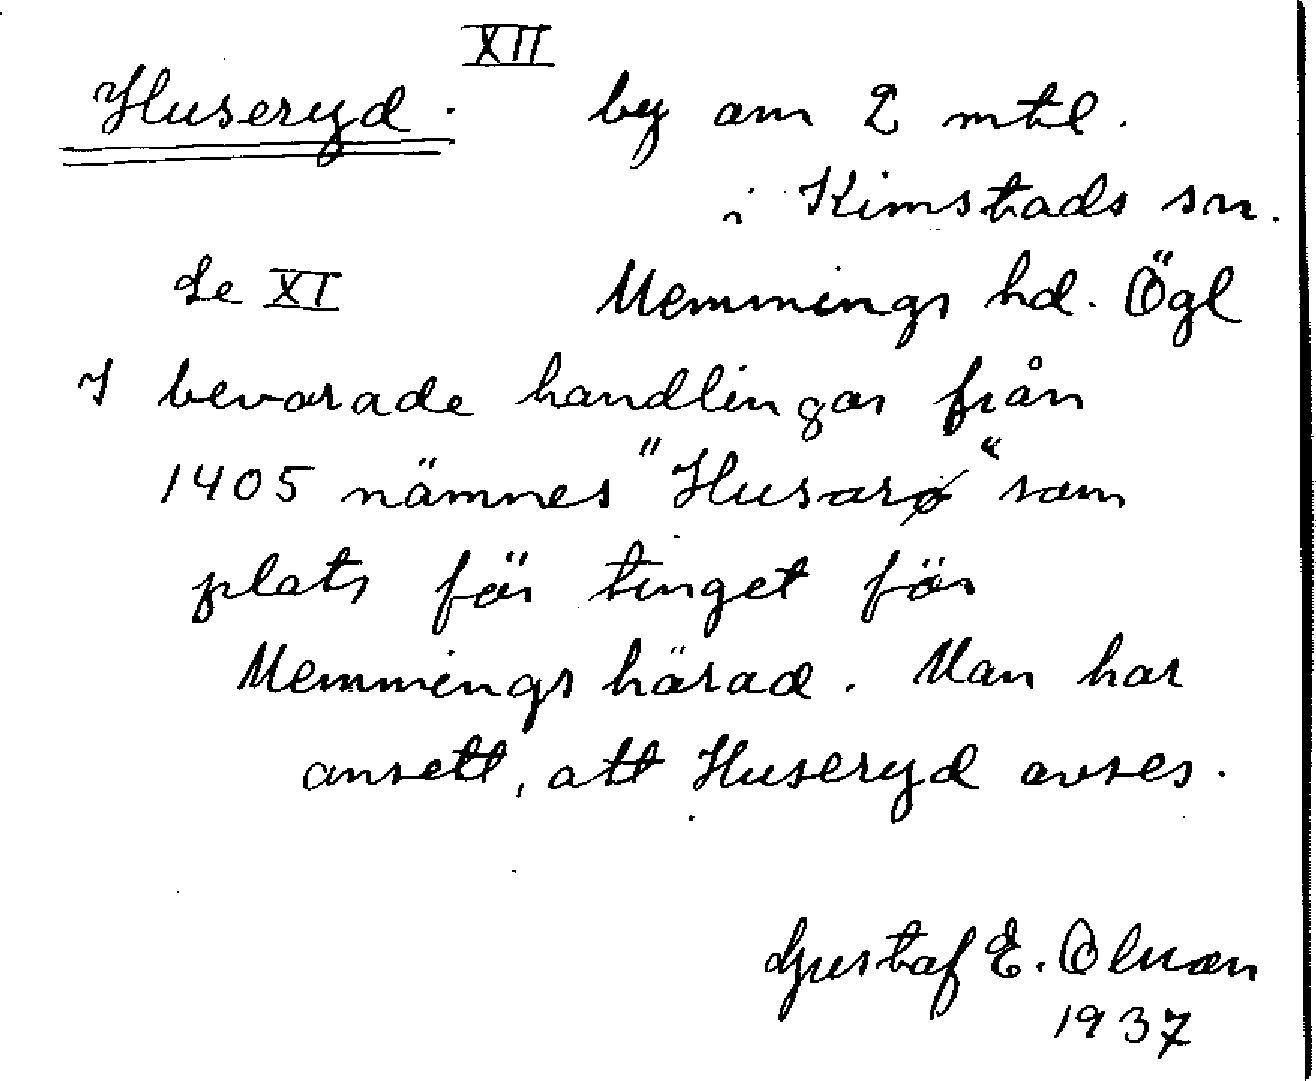 XII
Huseryd. by om 2 mtl.
i Kimstads sn.
Se XI Memmings hd. Ögl
I bevarade handlingar från
1405 nämnes "Husarø" som
plats för tinget för
Memmings härad. Man har
ansett, att Huseryd avses.
Gustaf E.
1937